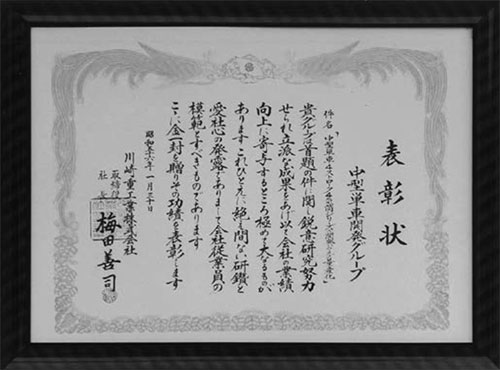 表彰状
中型単車開発グループ
件名
貴グループは首題の件に関し鋭意研究努力
せられ立派な成果をあげ以て会社の業績
向上に寄与するところ極めて大なるものが
ありますこれひとえに絶え間ない研鑽と
愛社心の発露でありまして会社従業員の
模範とすべきものであります
ここに金一封を贈りその功績を表彰します
昭和五六年一月三十日
川崎重工業株式会社
取締役
社長
梅田善司